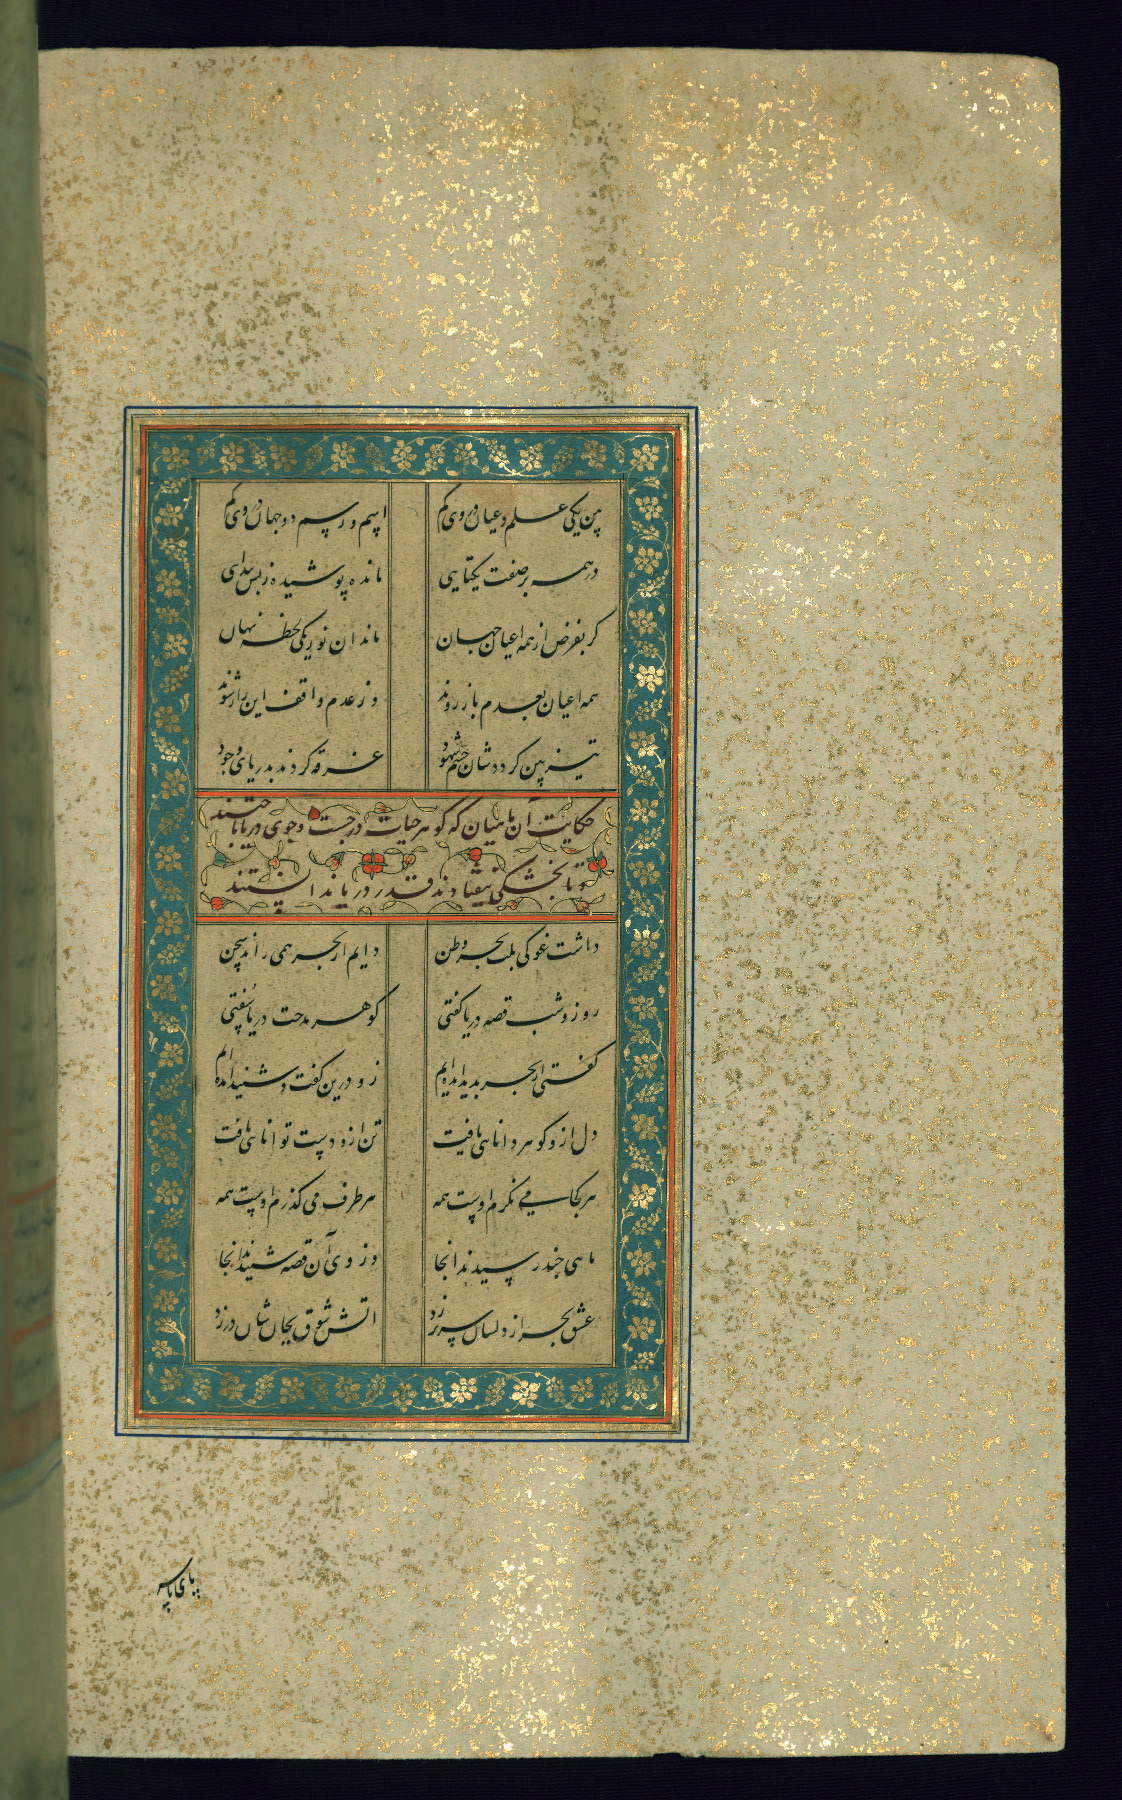 بین یکی علم و عیان در وی گم اسم و رسم دو جهان در وی گم
در همه بر صفت یکتایی مانده پوشیده ز بس پیدایی
گر بفرض از همه اعیان جهان ماند ان نور یکی لحظه نهان
همه اعیان بعدم باز روند وز عدم واقف این راز شوند
تیزبین گرددشان چشم شهود غرقه گردند بدریای وجود
حکایت آن ماهیان که گوهر حیات در جست و جوی دریا باختند
و تا بخشکی نیفتادند قدر دریا ندانستند
داشت غوکی بلب بحر وطن دایم از بحر همی راند سخن
روز و شب قصه دریا گفتی گوهر مدحت دریا سفتی
گفتی از بحر پدید امده ایم زو درین گفت و شنید امده ایم
دل ازو گوهر دانایی یافت تن ازو دست توانایی یافت
هر کجا می نگرم اوست همه هر طرف می گذرم اوست همه
ماهی چند رسیدند انجا وز وی آن قصه شنیدند انجا
عشق بحر از دلشان سر برزد اتش شوق بجان شان در زد
پای تا سر